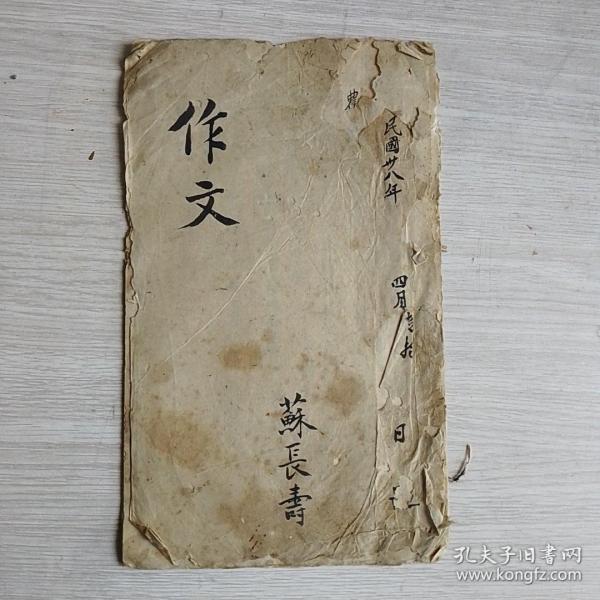 民國卅八年
四月
日
作文
蘇長壽
孔夫子旧書网
www.kongfz.com